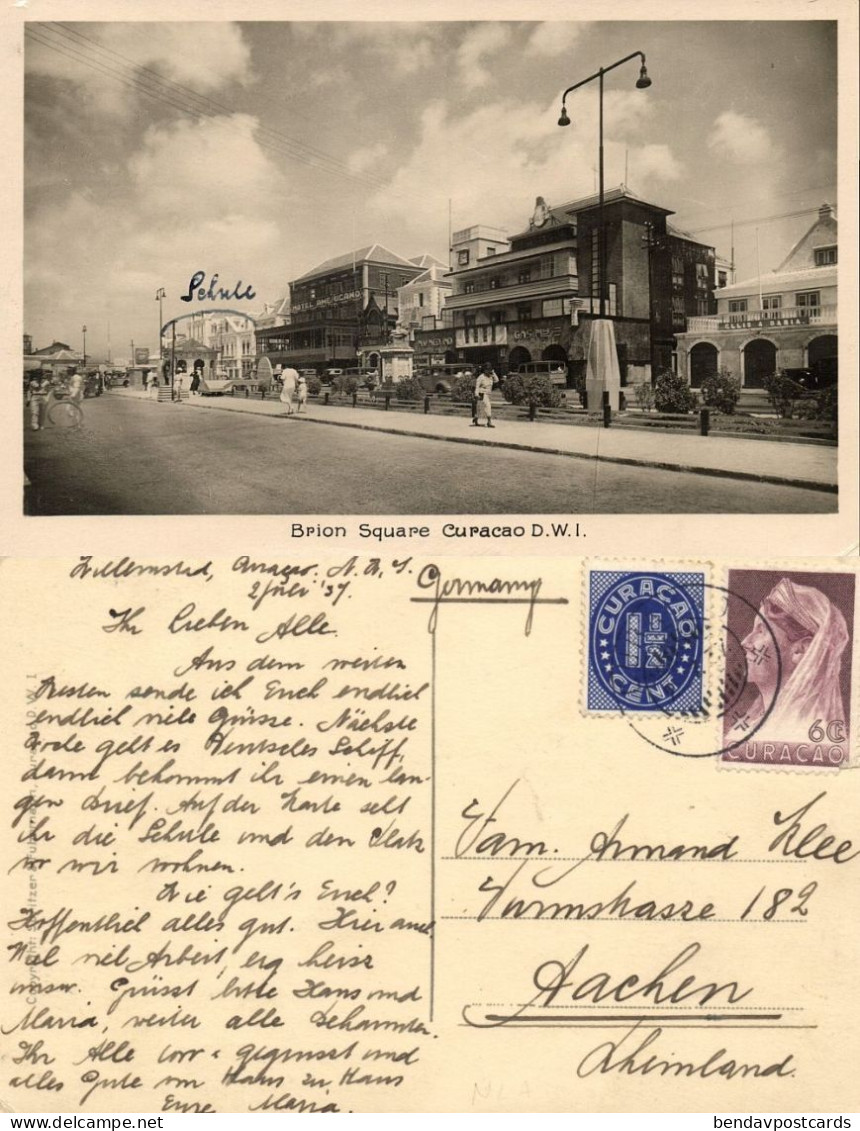 Schule
HOTEL AMERICANO
Brion Square Curacao D.W.I.
Willemstad, Curaçao. N.W.I.
2 Juli '37.
Ihr Lieben Alle.
Aus dem weiten
Westen sende ich Euch endlich
endlich viele Grüsse. Nächste
geht es Schiff,
dann bekommt ihr einen lan-
gen Brief. Auf der Karte seht
ihr die Schule und den Platz
wo wir wohnen.
Wie geht's Euch?
Hoffentlich alles gut. Hier auch.
Viel Arbeit, erg heiss
usw. Grüsst bitte Hans und
Maria, weiter alle Bekannten.
Ihr Alle gegrüsst und
alles Gute von Haus zu Haus
Eure Maria.
Germany
CURAÇAO
1½
CENT
6C
CURAÇAO
Fam. Armand Klee
Turmstrasse 182
Aachen
Rheinland.
bendavpostcards